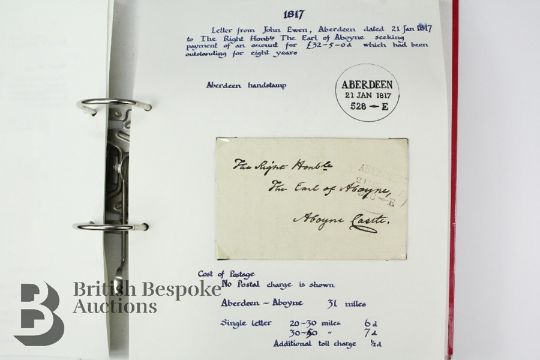 1817
Letter from John Ewen, Aberdeen dated 21 Jan 1817
to The Right Honble The Earl of Aboyne seeking
payment of an account for £32-5-0d which had been
outstanding for eight years
Aberdeen handstamp
ABERDEEN
21 JAN 1817
528 - E
The Right Honble
The Earl of Aboyne,
Aboyne Castle.
Cost of Postage
No Postal charge is shown
Aberdeen - Aboyne 31 miles
Single letter 20-30 miles 6d
30-50 " 7d
Additional toll charge ½d
British Bespoke
Auctions